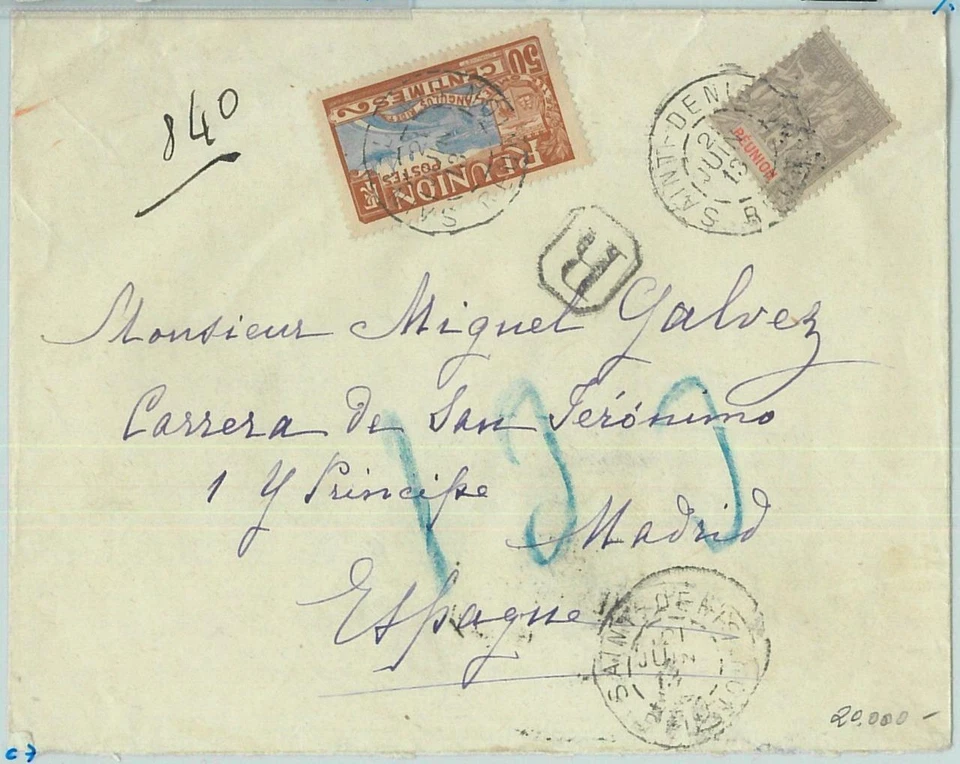 840
50
CENTIMES
RÉUNION
POSTES
RF
RÉUNION
SAINT-DENIS
JUIN
13
R
Monsieur Miguel Galvez
Carrera de San Jérónimo
1 y Principe
Madrid
Espagne
133
SAINT-DENIS
21
JUIN
13
20.000 -
c7